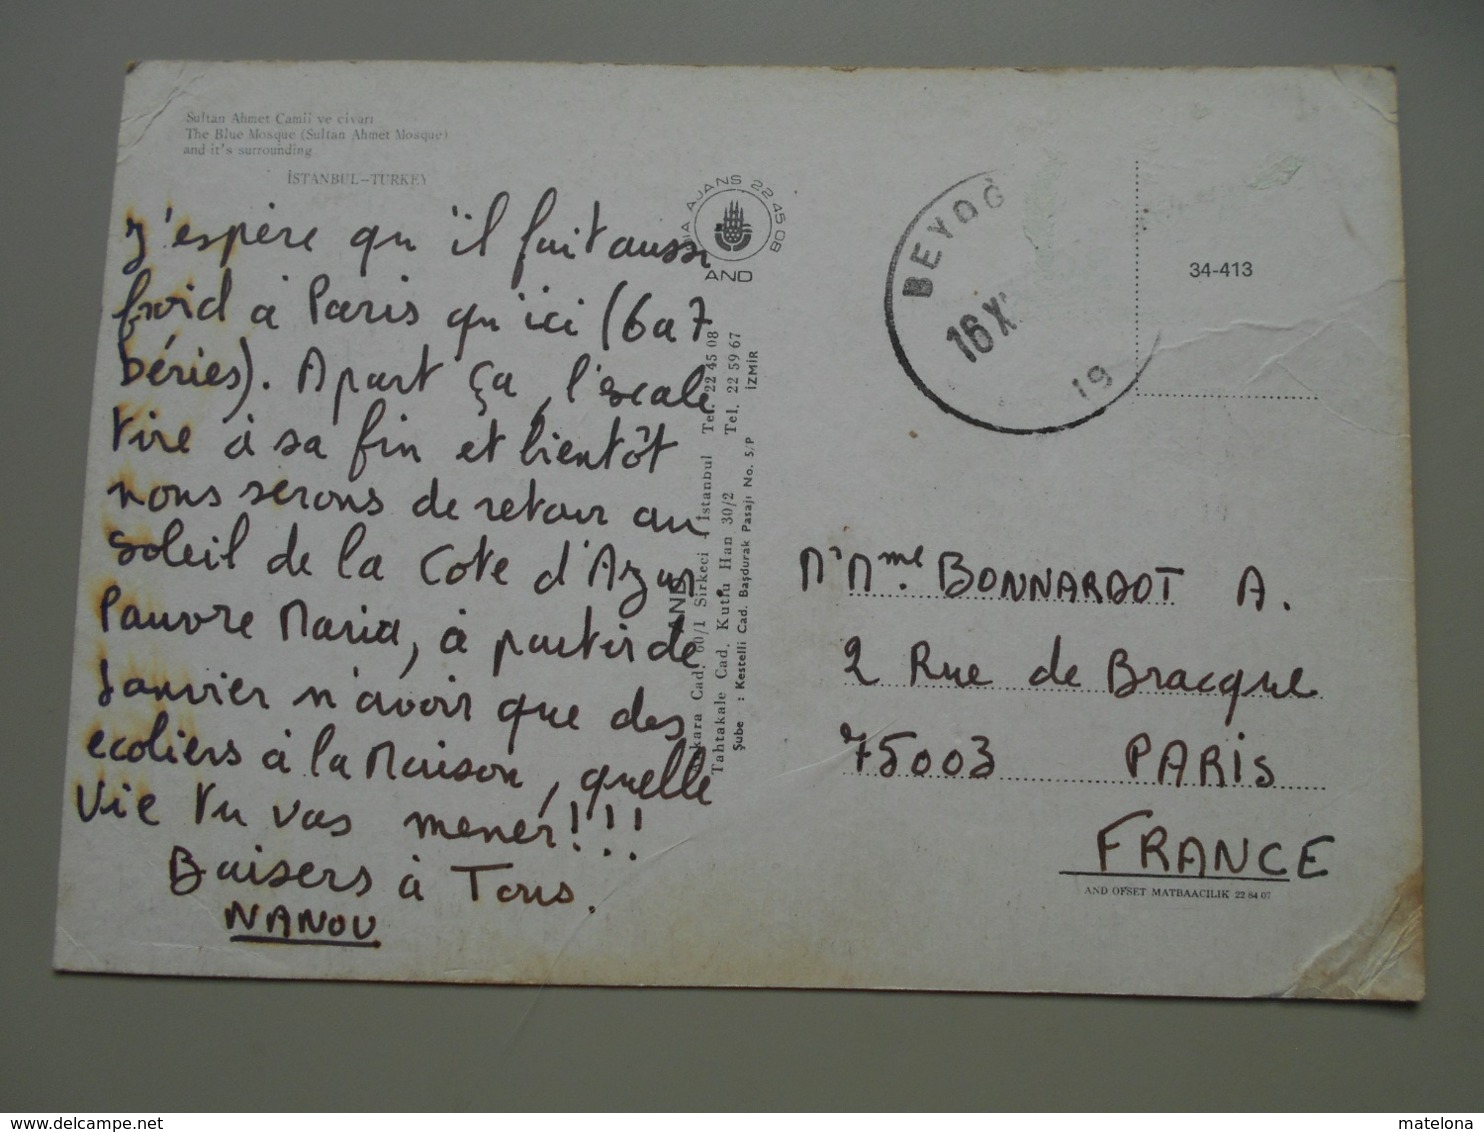 Sultan Ahmet Camii ve civarı
The Blue Mosque (Sultan Ahmet Mosque)
and it's surrounding
İSTANBUL-TURKEY
J'espère qu'il fait aussi
froid à Paris qu'ici (6 a 7
béries). Apart ça, l'escale
tire à sa fin et bientôt
nous serons de retour au
soleil de la Cote d'Azur.
Pauvre Maria, à partir de
Janvier n'avoir que des
ecoliers à la Maison, quelle
Vie tu vas mener!!!
Baisers à Tous.
NANOU
AJANS 22 45 08
AND
AND
Ankara Cad. 60/1 Sirkeci İstanbul Tel. 22 45 08
Tahtakale Cad. Kutlu Han 30/2 Tel. 22 59 67
Şube : Kestelli Cad. Başdurak Pasajı No. 5/P İZMİR
BEYOĞ
16 X
19
34-413
Mr Mme BONNARDOT A.
2 Rue de Bracque
75003 PARIS
FRANCE
AND OFSET MATBAACILIK 22 84 07
delcampe.net
matelona